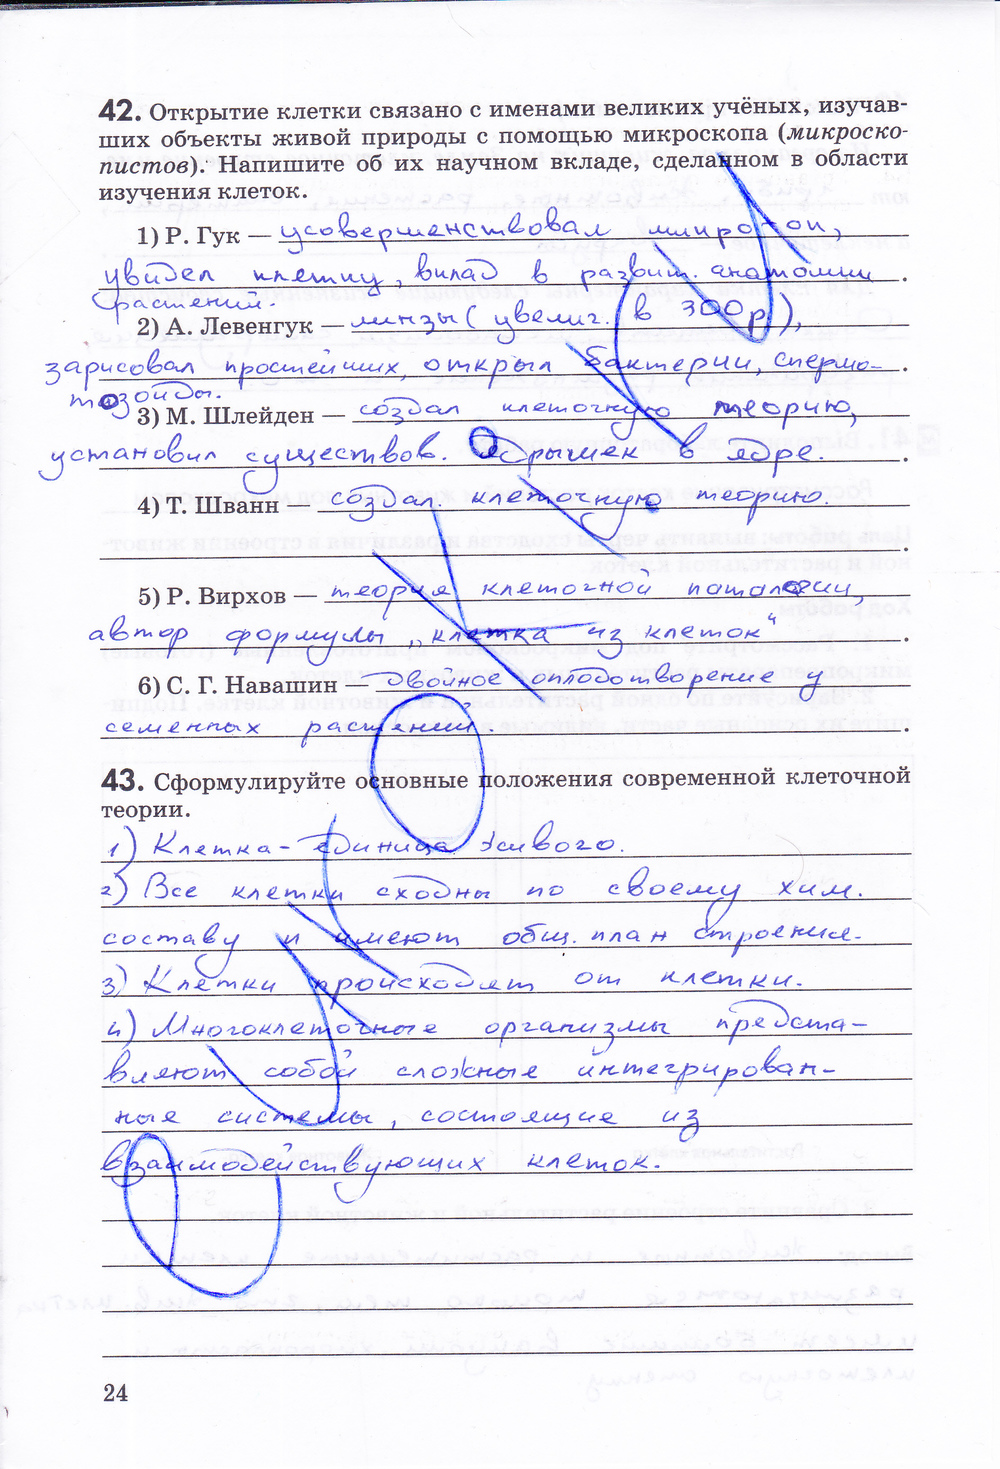 42. Открытие клетки связано с именами великих учёных, изучав-
ших объекты живой природы с помощью микроскопа (микроско-
пистов). Напишите об их научном вкладе, сделанном в области
изучения клеток.
1) Р. Гук — усовершенствовал микроскоп,
увидел клетку, вклад в развит. анатомии
растений.
2) А. Левенгук — линзы (увелич. в 300р),
зарисовал простейших, открыл бактерии, спермо-
тозойды.
3) М. Шлейден — создал клеточную теорию,
установил существов. ядрышек в ядре.
4) Т. Шванн — создал клеточную теорию.
5) Р. Вирхов — теория клеточной патологии,
автор формулы „клетка из клеток"
6) С. Г. Навашин — двойное оплодотворение у
семенных растений.
43. Сформулируйте основные положения современной клеточной
теории.
1) Клетка - единица живого.
2) Все клетки сходны по своему хим.
составу и имеют общ. план строения.
3) Клетки происходят от клетки.
4) Многоклеточные организмы предста-
вляют собой сложные интегрирован-
ные системы, состоящие из
взаимодействующих клеток.
24